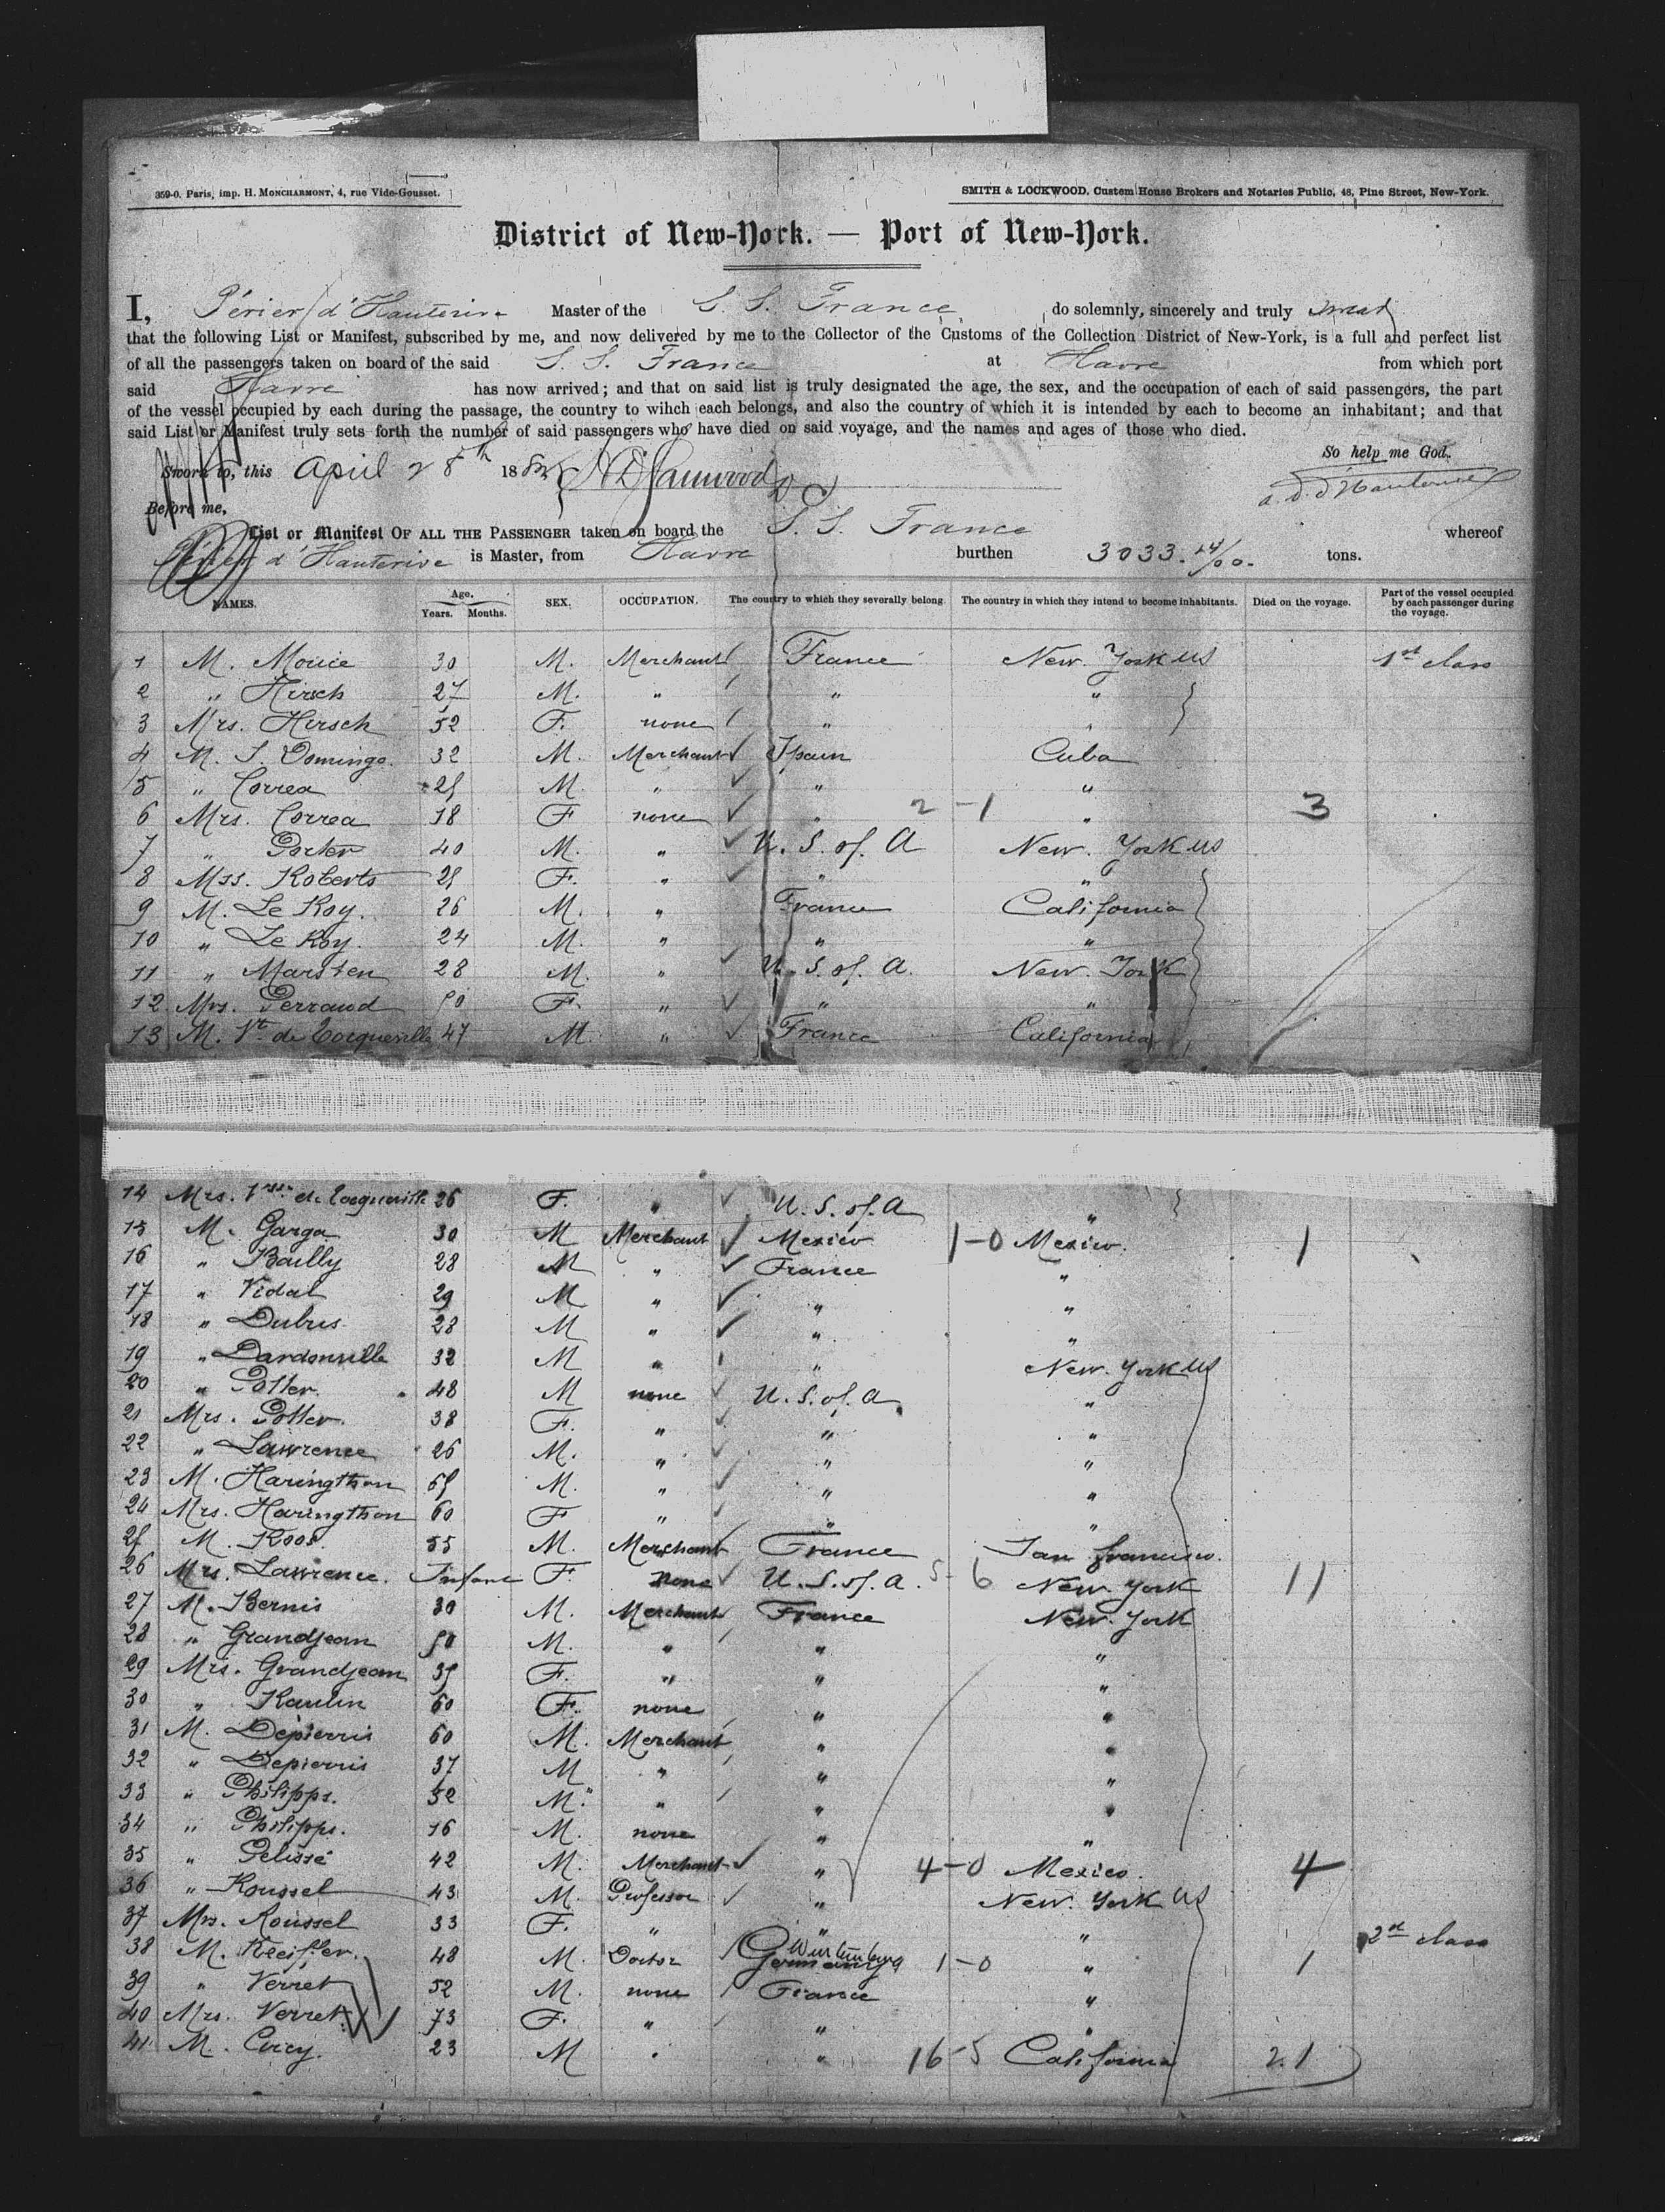 359-0. Paris, imp. H. MONCHARMONT, 4, rue Vide-Gousset.
SMITH & LOCKWOOD, Custom House Brokers and Notaries Public, 48, Pine Street, New-York.
District of New-York. — Port of New-York.
I, Périer d'Hauterive Master of the S. S. France do solemnly, sincerely and truly swear
that the following List or Manifest, subscribed by me, and now delivered by me to the Collector of the Customs of the Collection District of New-York, is a full and perfect list
of all the passengers taken on board of the said S. S. France at Havre from which port
said Havre has now arrived; and that on said list is truly designated the age, the sex, and the occupation of each of said passengers, the part
of the vessel occupied by each during the passage, the country to wihch each belongs, and also the country of which it is intended by each to become an inhabitant; and that
said List or Manifest truly sets forth the number of said passengers who have died on said voyage, and the names and ages of those who died.
So help me God.
Sworn to, this April 28th 188
Before me,
List or Manifest OF ALL THE PASSENGER taken on board the S. S. France whereof
Périer d'Hauterive is Master, from Havre burthen 3033. tons.
NAMES. Age. Years. Months. SEX. OCCUPATION. The country to which they severally belong. The country in which they intend to become inhabitants. Died on the voyage. Part of the vessel occupied by each passenger during the voyage.
1 M. 30 M. Merchant France New. York US 1st class
2 " Hirsch 27 M. " " "
3 Mrs. Hirsch 52 F. none " "
4 M. S. Domingo. 32 M. Merchant Spain Cuba
5 " Correa 25 M. " " "
6 Mrs. Correa 18 F none " 2 - 1 " 3
7 " Porter 40 M. " U. S. of. A New. York US
8 Mss. Roberts 25 F. " " "
9 M. Le Roy. 26 M. " France California
10 " Le Roy. 24 M. " " "
11 " Marsten 28 M. " U. S. of. A. New. York
12 Mrs. Perraud 50 F. " " "
13 M. Vte de Tocqueville 47 M. " France California
14 Mrs. Vsse de Tocqueville 26 F. " U. S. of. A "
15 M. Garga 30 M Merchant Mexico 1-0 Mexico. 1
16 " Bailly 28 M " France "
17 " Vidal 29 M " " "
18 " Dubus 28 M " " "
19 " Dardonville 32 M " " New. York US
20 " Potter. 48 M none U. S. of. A. "
21 Mrs. Potter. 38 F. " " "
22 " Lawrence 26 M. " " "
23 M. Haringthon 65 M. " " "
24 Mrs. Haringthon 60 F " " "
25 M. Roos. 55 M. Merchant France San francisco.
26 Mrs. Lawrence. Infant F. none U. S. of. A. 5-6 New. York 11
27 M. Bernis 30 M. Merchant France New. York
28 " Grandjean 50 M. " " "
29 Mrs. Grandjean 35 F. " " "
30 " Raulin 60 F. none " "
31 M. Depierris 60 M. Merchant " "
32 " Depierris 37 M " " "
33 " Philipps. 52 M. " " "
34 " Philipps. 16 M. none " "
35 " Pelissé 42 M. Merchant " 4-0 Mexico. 4
36 " Roussel 43 M. Professor " New. York US
37 Mrs. Roussel 33 F. " " " 2st class
38 M. 48 M. Doctor Germany Wurtemburg 1-0 " 1
39 " Verret 52 M. none France "
40 Mrs. Verret 73 F. " " "
41 M. 23 M " " 16-5 California 21